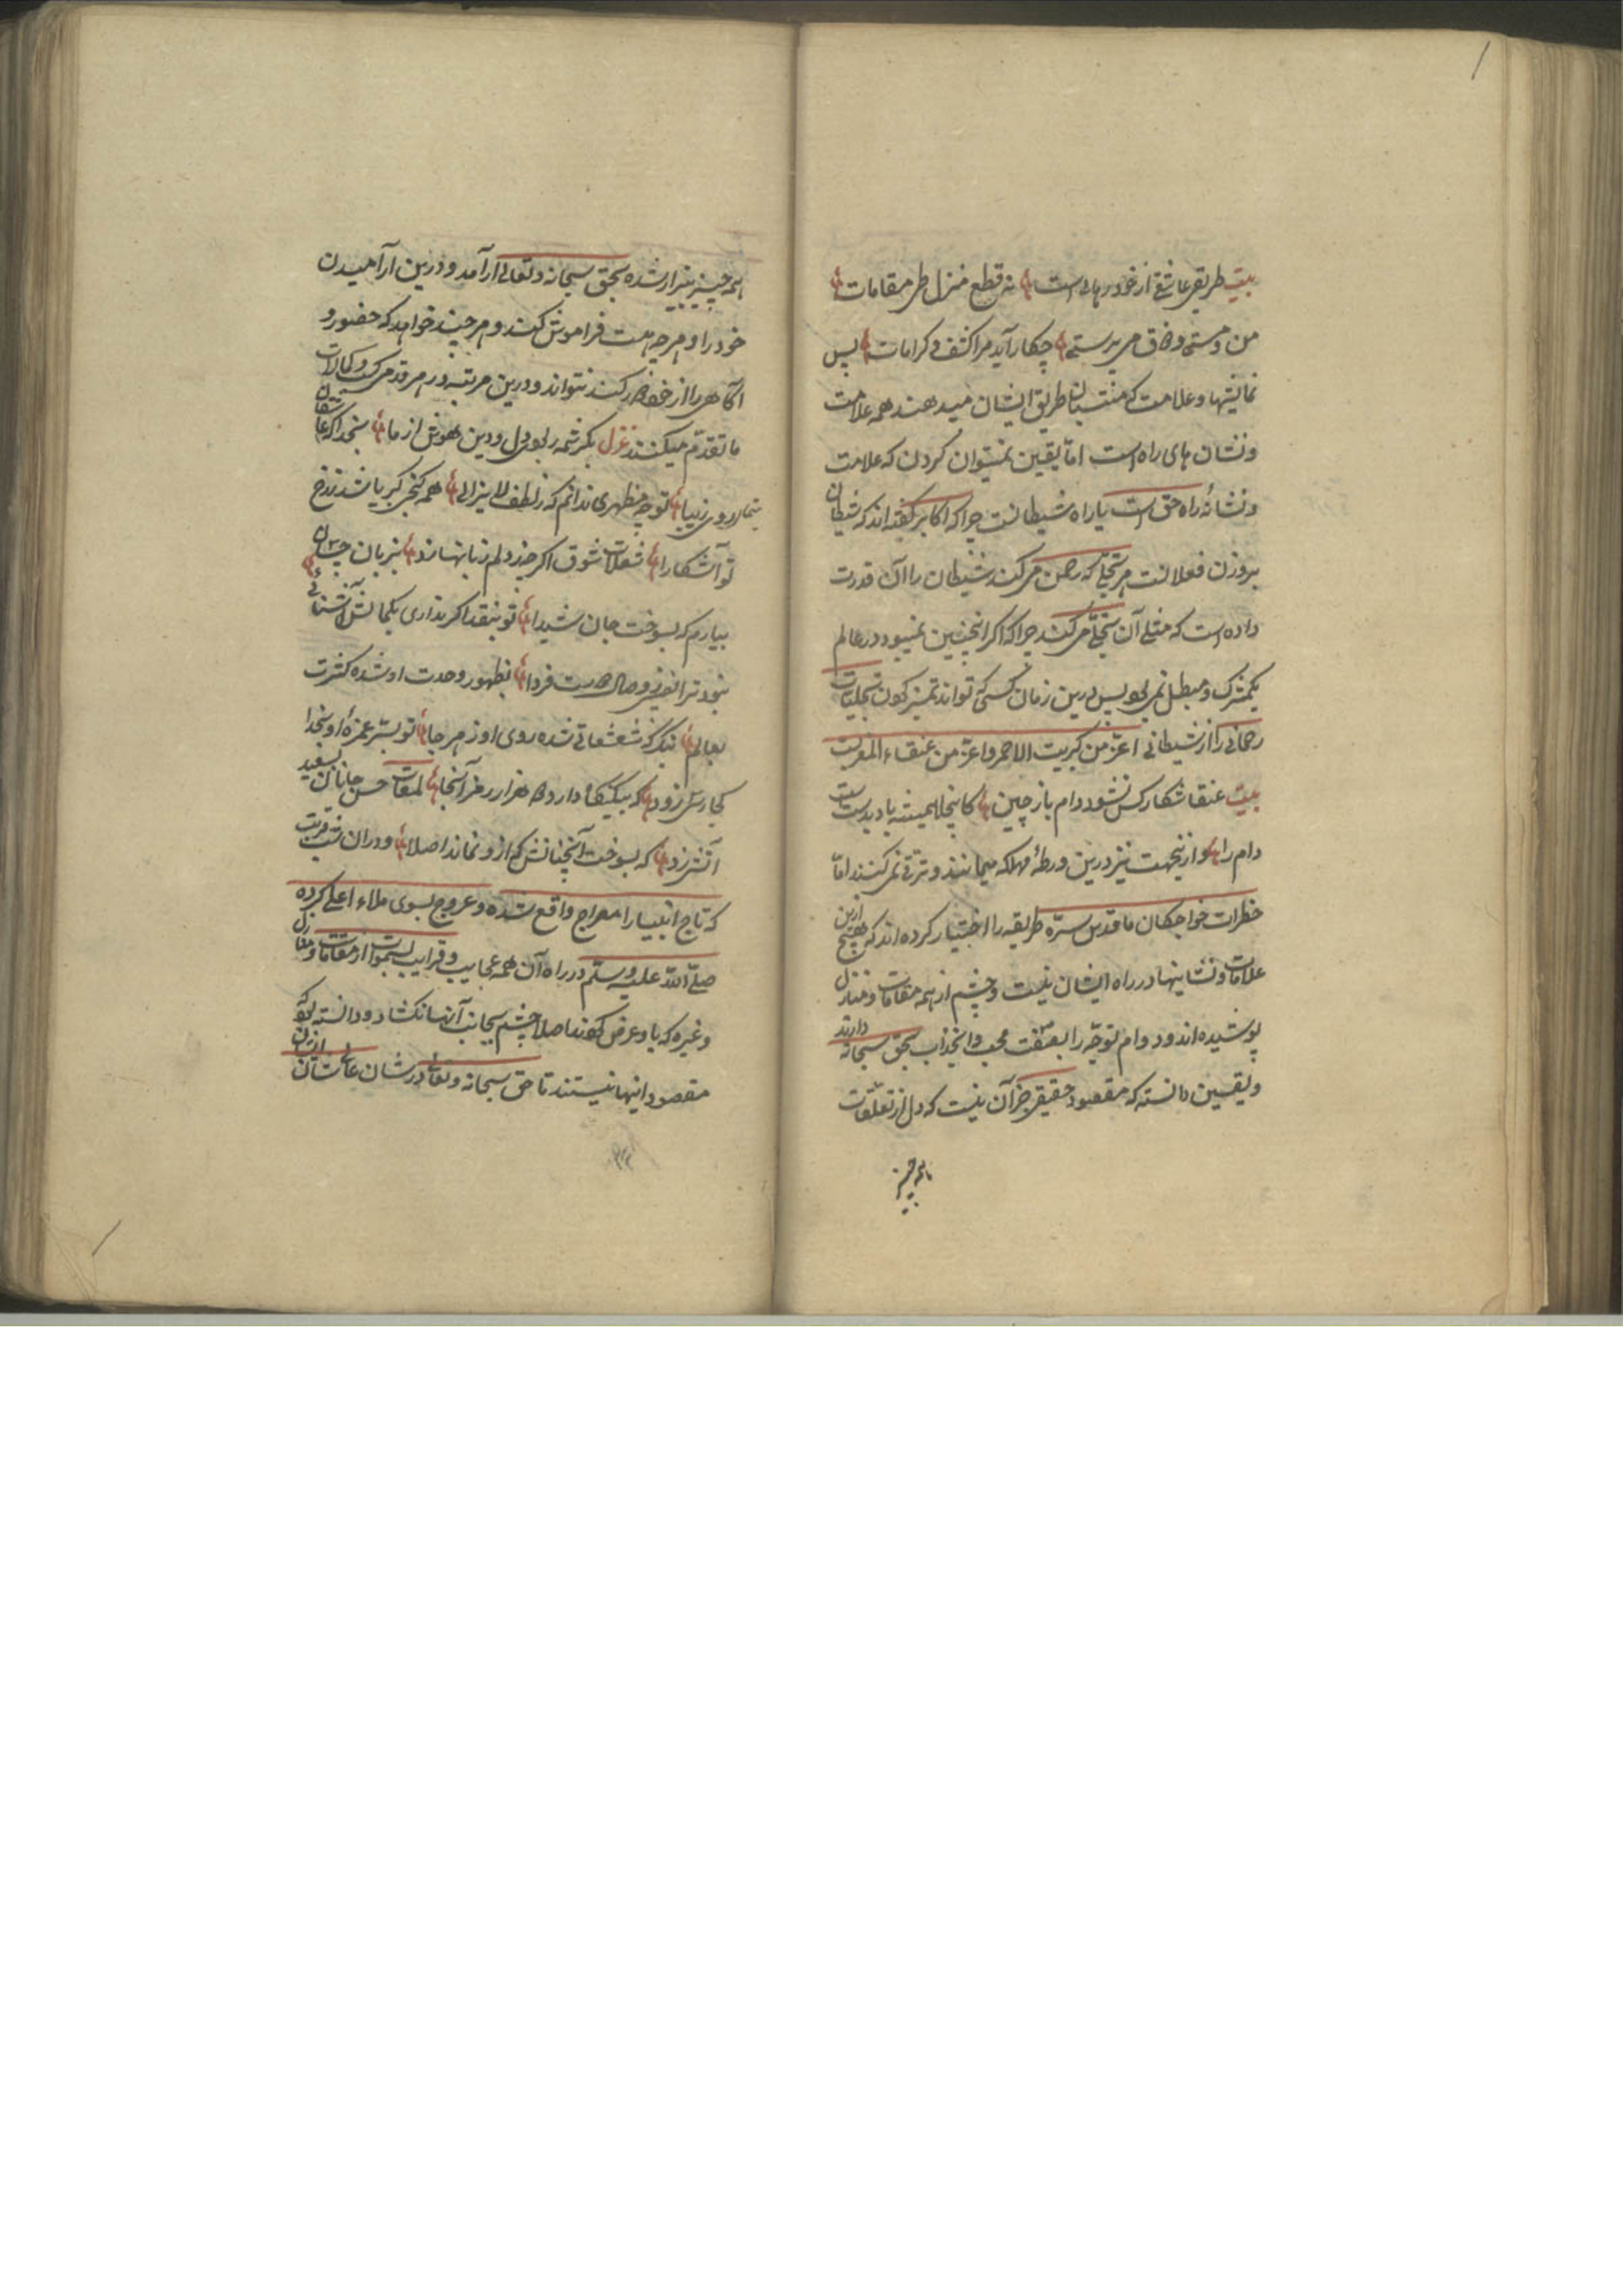 بیت طریق عاشقی از خود رهایی است نه قطع منزل و طی مقامات
من و مستی و ذوق می پرستی چکار آید مرا کشف و کرامات پس
نمایشها و علامت که منتسبان طریق ایشان میدهند همه علامت
و نشان های راه است اما یقین نمیتوان کردن که علامت
و نشانهٔ راه حق است یا راه شیطانست چرا که اکابر گفته اند که شیطان
بروزن فعلانست هر تجلّی که رحمن می کند شیطان را آن قدرت
داده است که مثل آن تجلّی می کند چرا که اگر اینچنین نمیبود در عالم
یک مشرک و مبطل نمی بود پس درین زمان کسی که تواند تمیز کردن تجلیات
رحمانی را از شیطانی اعزّ من کبریت الاحمر و اعزّ من عنقاء المغربست
بیت عنقا شکار کس نشود دام باز چین کاینجا همیشه باد بدست است
دام را و ازینجهت نیز درین ورطهٔ مهلکه میمانند و ترقی نمی کنند امّا
حضرات خواجکان ما قدس سرّه طریقه را اختیار کرده اند که هیچ ازین
علامات و نشانیها در راه ایشان نیست و چشم از همه مقامات و منازل
پوشیده اند و دوام توجّه را بصفت محبت و انجذاب بحق سبحانه دارند
و یقین دانسته که مقصود حقیقی جز آن نیست که دل از تعلّقات
همه چیز بیزار شده بحق سبحانه و تعالی آرامد و درین آرامیدن
خود را و هر چه هست فراموش کند و هر چند خواهد که حضور و
آگاهی را از خود کند نتواند و درین مرتبه در هر قدم کسب کمالات
ما تقدّم میکنند غزل بکرشمه ربودی دل و دین و هوش از ما بخدا که عاشقان
بنما روی زیبا تو چه مظهری ندانم که ز لطف لایزالی همه گنج کبریا شد ز رخ
تو آشکارا شعلات شوق اگر چه ز دلم زبانها زد بزبان چسان
بیارم که بسوخت جان شیدا تو بنقد اگر نداری بکمالش آشنائی
نبود ترا نصیبی وصالست فردا بظهور وحدت او شده کثرت
بعالم بنگر که شعشعانی شده روی او ز هر جا تو بسرّ غمزهٔ او بخدا
کجا رسی زود که بیکنکا دارد دو هزار رمز آنجا لمعات حسن جانان بسعید
آتش زد که بسوخت آنچنانش که ازو نماند اصلا و دران شب قربت
که تاج انبیا را معراج واقع شده و عروج بسوی ملاء اعلی کرده
صلّی اللّه علیه و سلّم در راه آن همه عجایب و غرایب سموات از مقامات و منازل
و غیره که باو عرض کردند اصلا چشم بجانب آنها نکشاد و دانسته که
مقصود اینها نیستند تا حق سبحانه و تعالی در شان عالیشان ایشان
همه چیز